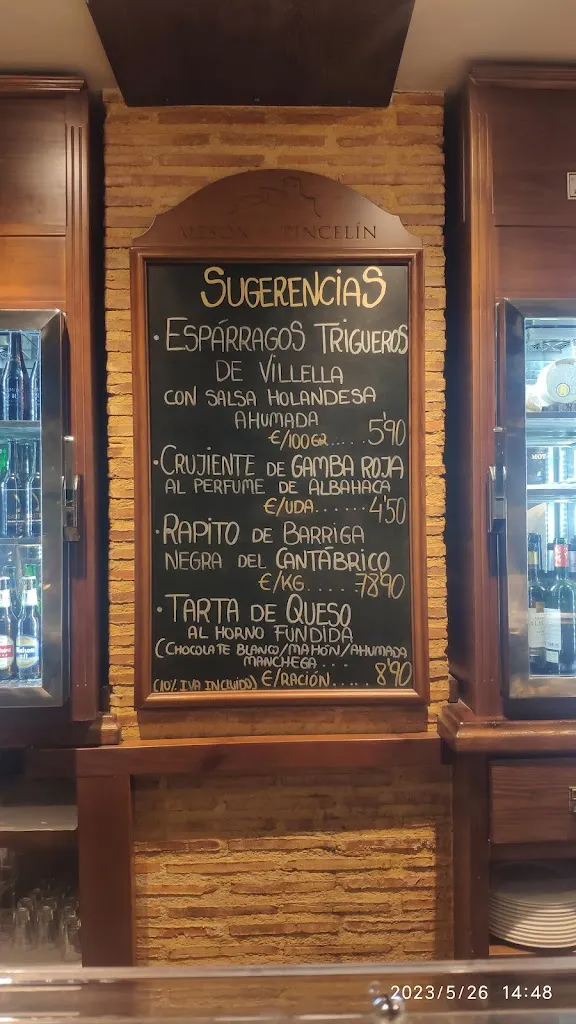 MESON PINCELÍN
SUGERENCIAS
· ESPÁRRAGOS TRIGUEROS
DE VILLELLA
CON SALSA HOLANDESA
AHUMADA
€/100GR..... 5'90
· CRUJIENTE DE GAMBA ROJA
AL PERFUME DE ALBAHACA
€/UDA....... 4'50
· RAPITO DE BARRIGA
NEGRA DEL CANTÁBRICO
€/KG...... 78'90
· TARTA DE QUESO
AL HORNO FUNDIDA
(CHOCOLATE BLANCO/MAHÓN/AHUMADA
MANCHEGA....
(10% IVA INCLUIDO) €/RACIÓN..... 8'90
2023/5/26 14:48